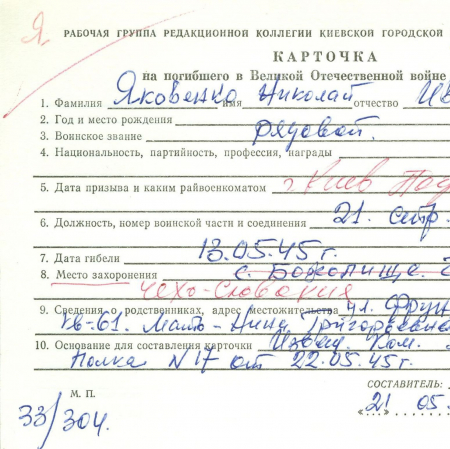 Я.
РАБОЧАЯ ГРУППА РЕДАКЦИОННОЙ КОЛЛЕГИИ КИЕВСКОЙ ГОРОДСКОЙ
КАРТОЧКА
на погибшего в Великой Отечественной войне
1. Фамилия Яковенко имя Николай отчество Ив
2. Год и место рождения
3. Воинское звание рядовой.
4. Национальность, партийность, профессия, награды
5. Дата призыва и каким райвоенкоматом г. Киев Под
6. Должность, номер воинской части и соединения 21.
7. Дата гибели 13.05.45г.
8. Место захоронения с.
Чехо-Словакия
9. Сведения о родственниках, адрес местожительства ул. Фрун
кв-61. Мать - Анна Григорьевна
10. Основание для составления карточки Извещ. Ком.
полка N 17 от 22.05.45г.
М. П.
СОСТАВИТЕЛЬ:
33/304.
«21 05.